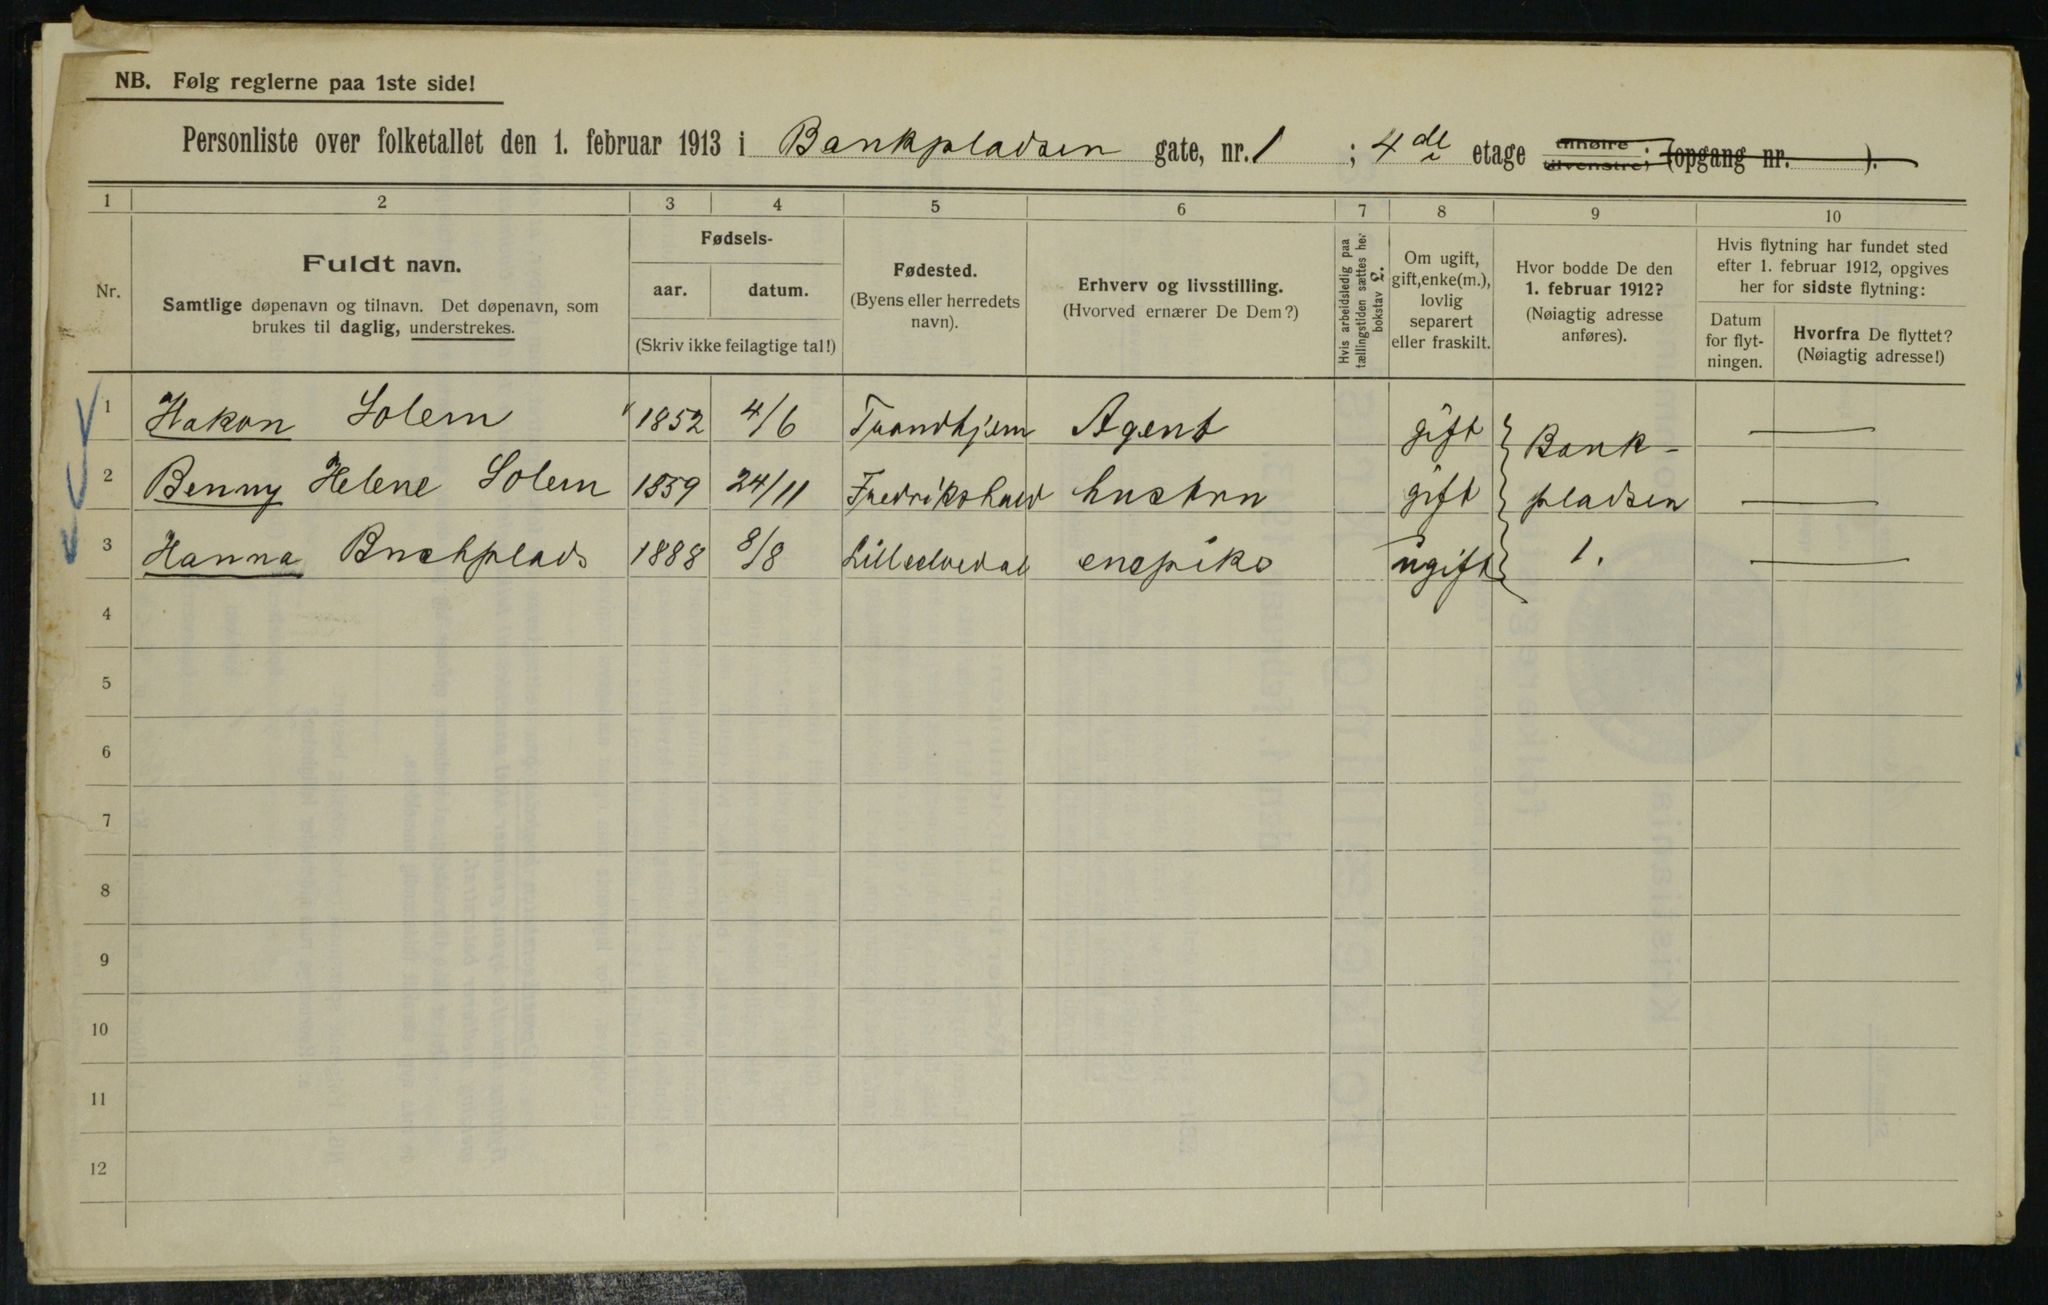 NB. Følg reglerne paa 1ste side!
Personliste over folketallet den 1. februar 1913 i Bankpladsen gate, nr. 1 ; 4 de etage tilhøire tilvenstre; (opgang nr. ).
1 2 3 4 5 6 7 8 9 10
Nr.
Fuldt navn.
Samtlige døpenavn og tilnavn. Det døpenavn, som
brukes til daglig, understrekes.
Fødsels-
aar. datum.
(Skriv ikke feilagtige tal!)
Fødested.
(Byens eller herredets
navn).
Erhverv og livsstilling.
(Hvorved ernærer De Dem?)
Hvis arbeidsledig paa
tællingstiden sættes her
bokstav L.
Om ugift,
gift, enke(m.),
lovlig
separert
eller fraskilt.
Hvor bodde De den
1. februar 1912?
(Nøiagtig adresse
anføres).
Hvis flytning har fundet sted
efter 1. februar 1912, opgives
her for sidste flytning:
Datum
for flyt-
ningen.
Hvorfra De flyttet?
(Nøiagtig adresse!)
1 Hakon Solem 1852 4/6 Trondhjem Agent gift Bank- —
2 Benny Helene Solem 1859 24/11 Fredrikshald hustru gift pladsen —
3 Hanna Buchplads 1888 8/8 Lilleelvedal enepike ugift 1. —
4
5
6
7
8
9
10
11
12